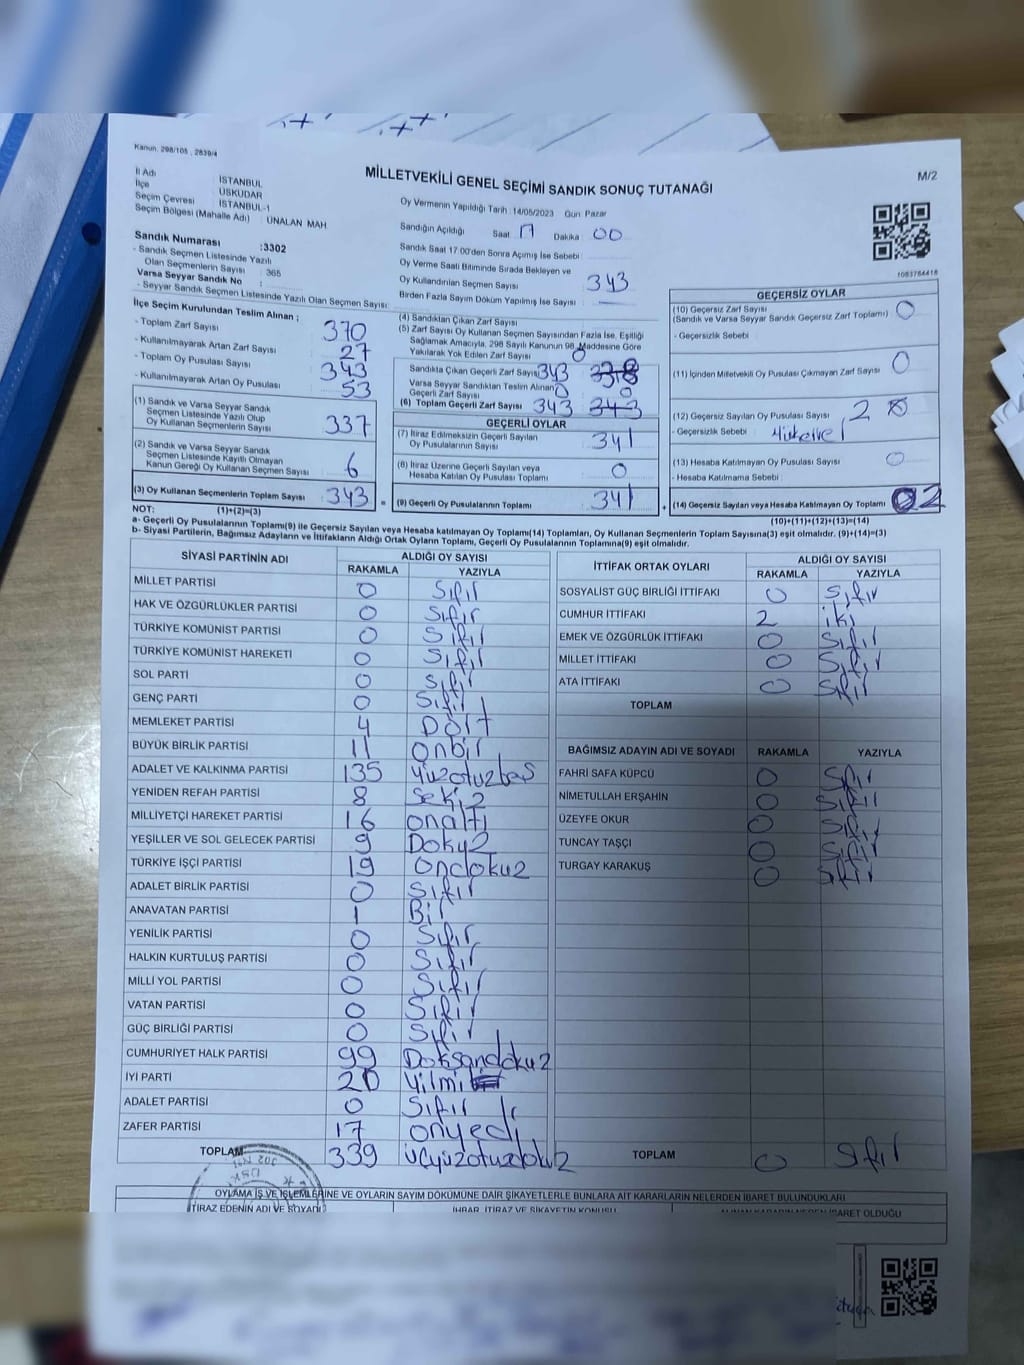 Kanun. 298/105 , 2839/4
MİLLETVEKİLİ GENEL SEÇİMİ SANDIK SONUÇ TUTANAĞI
M/2
İl Adı : İSTANBUL
İlçe : ÜSKÜDAR
Seçim Çevresi : İSTANBUL-1
Seçim Bölgesi (Mahalle Adı) : ÜNALAN MAH
Sandık Numarası :3302
- Sandık Seçmen Listesinde Yazılı
Olan Seçmenlerin Sayısı : 365
Varsa Seyyar Sandık No :
- Seyyar Sandık Seçmen Listesinde Yazılı Olan Seçmen Sayısı:
Oy Vermenin Yapıldığı Tarih :14/05/2023 Gün Pazar
Sandığın Açıldığı Saat 17 Dakika 00
Sandık Saat 17:00'den Sonra Açımış İse Sebebi :
Oy Verme Saati Bitiminde Sırada Bekleyen ve
Oy Kullandırılan Seçmen Sayısı : 343
Birden Fazla Sayım Döküm Yapılmış İse Sayısı :
1083764418
İlçe Seçim Kurulundan Teslim Alınan ;
- Toplam Zarf Sayısı : 370
- Kullanılmayarak Artan Zarf Sayısı : 27
- Toplam Oy Pusulası Sayısı : 343
- Kullanılmayarak Artan Oy Pusulası : 53
(1) Sandık ve Varsa Seyyar Sandık
Seçmen Listesinde Yazılı Olup
Oy Kullanan Seçmenlerin Sayısı 337
(2) Sandık ve Varsa Seyyar Sandık
Seçmen Listesinde Kayıtlı Olmayan
Kanun Gereği Oy Kullanan Seçmen Sayısı 6
(3) Oy Kullanan Seçmenlerin Toplam Sayısı : 343 =
(4) Sandıktan Çıkan Zarf Sayısı
(5) Zarf Sayısı Oy Kullanan Seçmen Sayısından Fazla İse, Eşitliği
Sağlamak Amacıyla, 298 Sayılı Kanunun 98. Maddesine Göre
Yakılarak Yok Edilen Zarf Sayısı 0
Sandıkta Çıkan Geçerli Zarf Sayısı 343
Varsa Seyyar Sandıktan Teslim Alınan
Geçerli Zarf Sayısı : 0 0
(6) Toplam Geçerli Zarf Sayısı 343 343
GEÇERLİ OYLAR
(7) İtiraz Edilmeksizin Geçerli Sayılan
Oy Pusulalarının Sayısı : 341
(8) İtiraz Üzerine Geçerli Sayılan veya
Hesaba Katılan Oy Pusulaları Toplamı : 0
(9) Geçerli Oy Pusulalarının Toplamı : 341 +
GEÇERSİZ OYLAR
(10) Geçersiz Zarf Sayısı
(Sandık ve Varsa Seyyar Sandık Geçersiz Zarf Toplamı) : 0
- Geçersizlik Sebebi :
(11) İçinden Milletvekili Oy Pusulası Çıkmayan Zarf Sayısı : 0
(12) Geçersiz Sayılan Oy Pusulası Sayısı : 2
- Geçersizlik Sebebi :
(13) Hesaba Katılmayan Oy Pusulası Sayısı : 0
- Hesaba Katılmama Sebebi :
(14) Geçersiz Sayılan veya Hesaba Katılmayan Oy Toplamı 02
NOT: (1)+(2)=(3)
(10)+(11)+(12)+(13)=(14)
a- Geçerli Oy Pusulalarının Toplamı(9) ile Geçersiz Sayılan veya Hesaba katılmayan Oy Toplamı(14) Toplamları, Oy Kullanan Seçmenlerin Toplam Sayısına(3) eşit olmalıdır. (9)+(14)=(3)
b- Siyasi Partilerin, Bağımsız Adayların ve İttifakların Aldığı Ortak Oyların Toplamı, Geçerli Oy Pusulalarının Toplamına(9) eşit olmalıdır.
SİYASİ PARTİNİN ADI ALDIĞI OY SAYISI
RAKAMLA YAZIYLA
MİLLET PARTİSİ 0 Sıfır
HAK VE ÖZGÜRLÜKLER PARTİSİ 0 Sıfır
TÜRKİYE KOMÜNİST PARTİSİ 0 Sıfır
TÜRKİYE KOMÜNİST HAREKETİ 0 Sıfır
SOL PARTİ 0 Sıfır
GENÇ PARTİ 0 Sıfır
MEMLEKET PARTİSİ 4 Dört
BÜYÜK BİRLİK PARTİSİ 11 onbir
ADALET VE KALKINMA PARTİSİ 135 yüzotuzbeş
YENİDEN REFAH PARTİSİ 8 Sekiz
MİLLİYETÇİ HAREKET PARTİSİ 16 onaltı
YEŞİLLER VE SOL GELECEK PARTİSİ 9 Dokuz
TÜRKİYE İŞÇİ PARTİSİ 19 ondokuz
ADALET BİRLİK PARTİSİ 0 Sıfır
ANAVATAN PARTİSİ 1 Bir
YENİLİK PARTİSİ 0 Sıfır
HALKIN KURTULUŞ PARTİSİ 0 Sıfır
MİLLİ YOL PARTİSİ 0 Sıfır
VATAN PARTİSİ 0 Sıfır
GÜÇ BİRLİĞİ PARTİSİ 0 Sıfır
CUMHURİYET HALK PARTİSİ 99 Doksandokuz
İYİ PARTİ 20 Yilmi
ADALET PARTİSİ 0 Sıfır
ZAFER PARTİSİ 17 onyedi
TOPLAM 339 üçyüzotuzdokuz
İTTİFAK ORTAK OYLARI ALDIĞI OY SAYISI
RAKAMLA YAZIYLA
SOSYALİST GÜÇ BİRLİĞİ İTTİFAKI 0 Sıfır
CUMHUR İTTİFAKI 2 iki
EMEK VE ÖZGÜRLÜK İTTİFAKI 0 Sıfır
MİLLET İTTİFAKI 0 Sıfır
ATA İTTİFAKI 0 Sıfır
TOPLAM
BAĞIMSIZ ADAYIN ADI VE SOYADI RAKAMLA YAZIYLA
FAHRİ SAFA KÜPCÜ 0 Sıfır
NİMETULLAH ERŞAHİN 0 Sıfır
ÜZEYFE OKUR 0 Sıfır
TUNCAY TAŞÇI 0 Sıfır
TURGAY KARAKUŞ 0 Sıfır
TOPLAM 0 Sıfır
OYLAMA İŞ VE İŞLEMLERİNE VE OYLARIN SAYIM DÖKÜMÜNE DAİR ŞİKAYETLERLE BUNLARA AİT KARARLARIN NELERDEN İBARET BULUNDUKLARI
İTİRAZ EDENİN ADI VE SOYADI İHBAR, İTİRAZ VE ŞİKAYETİN KONUSU ALINAN KARARIN NEDEN İBARET OLDUĞU